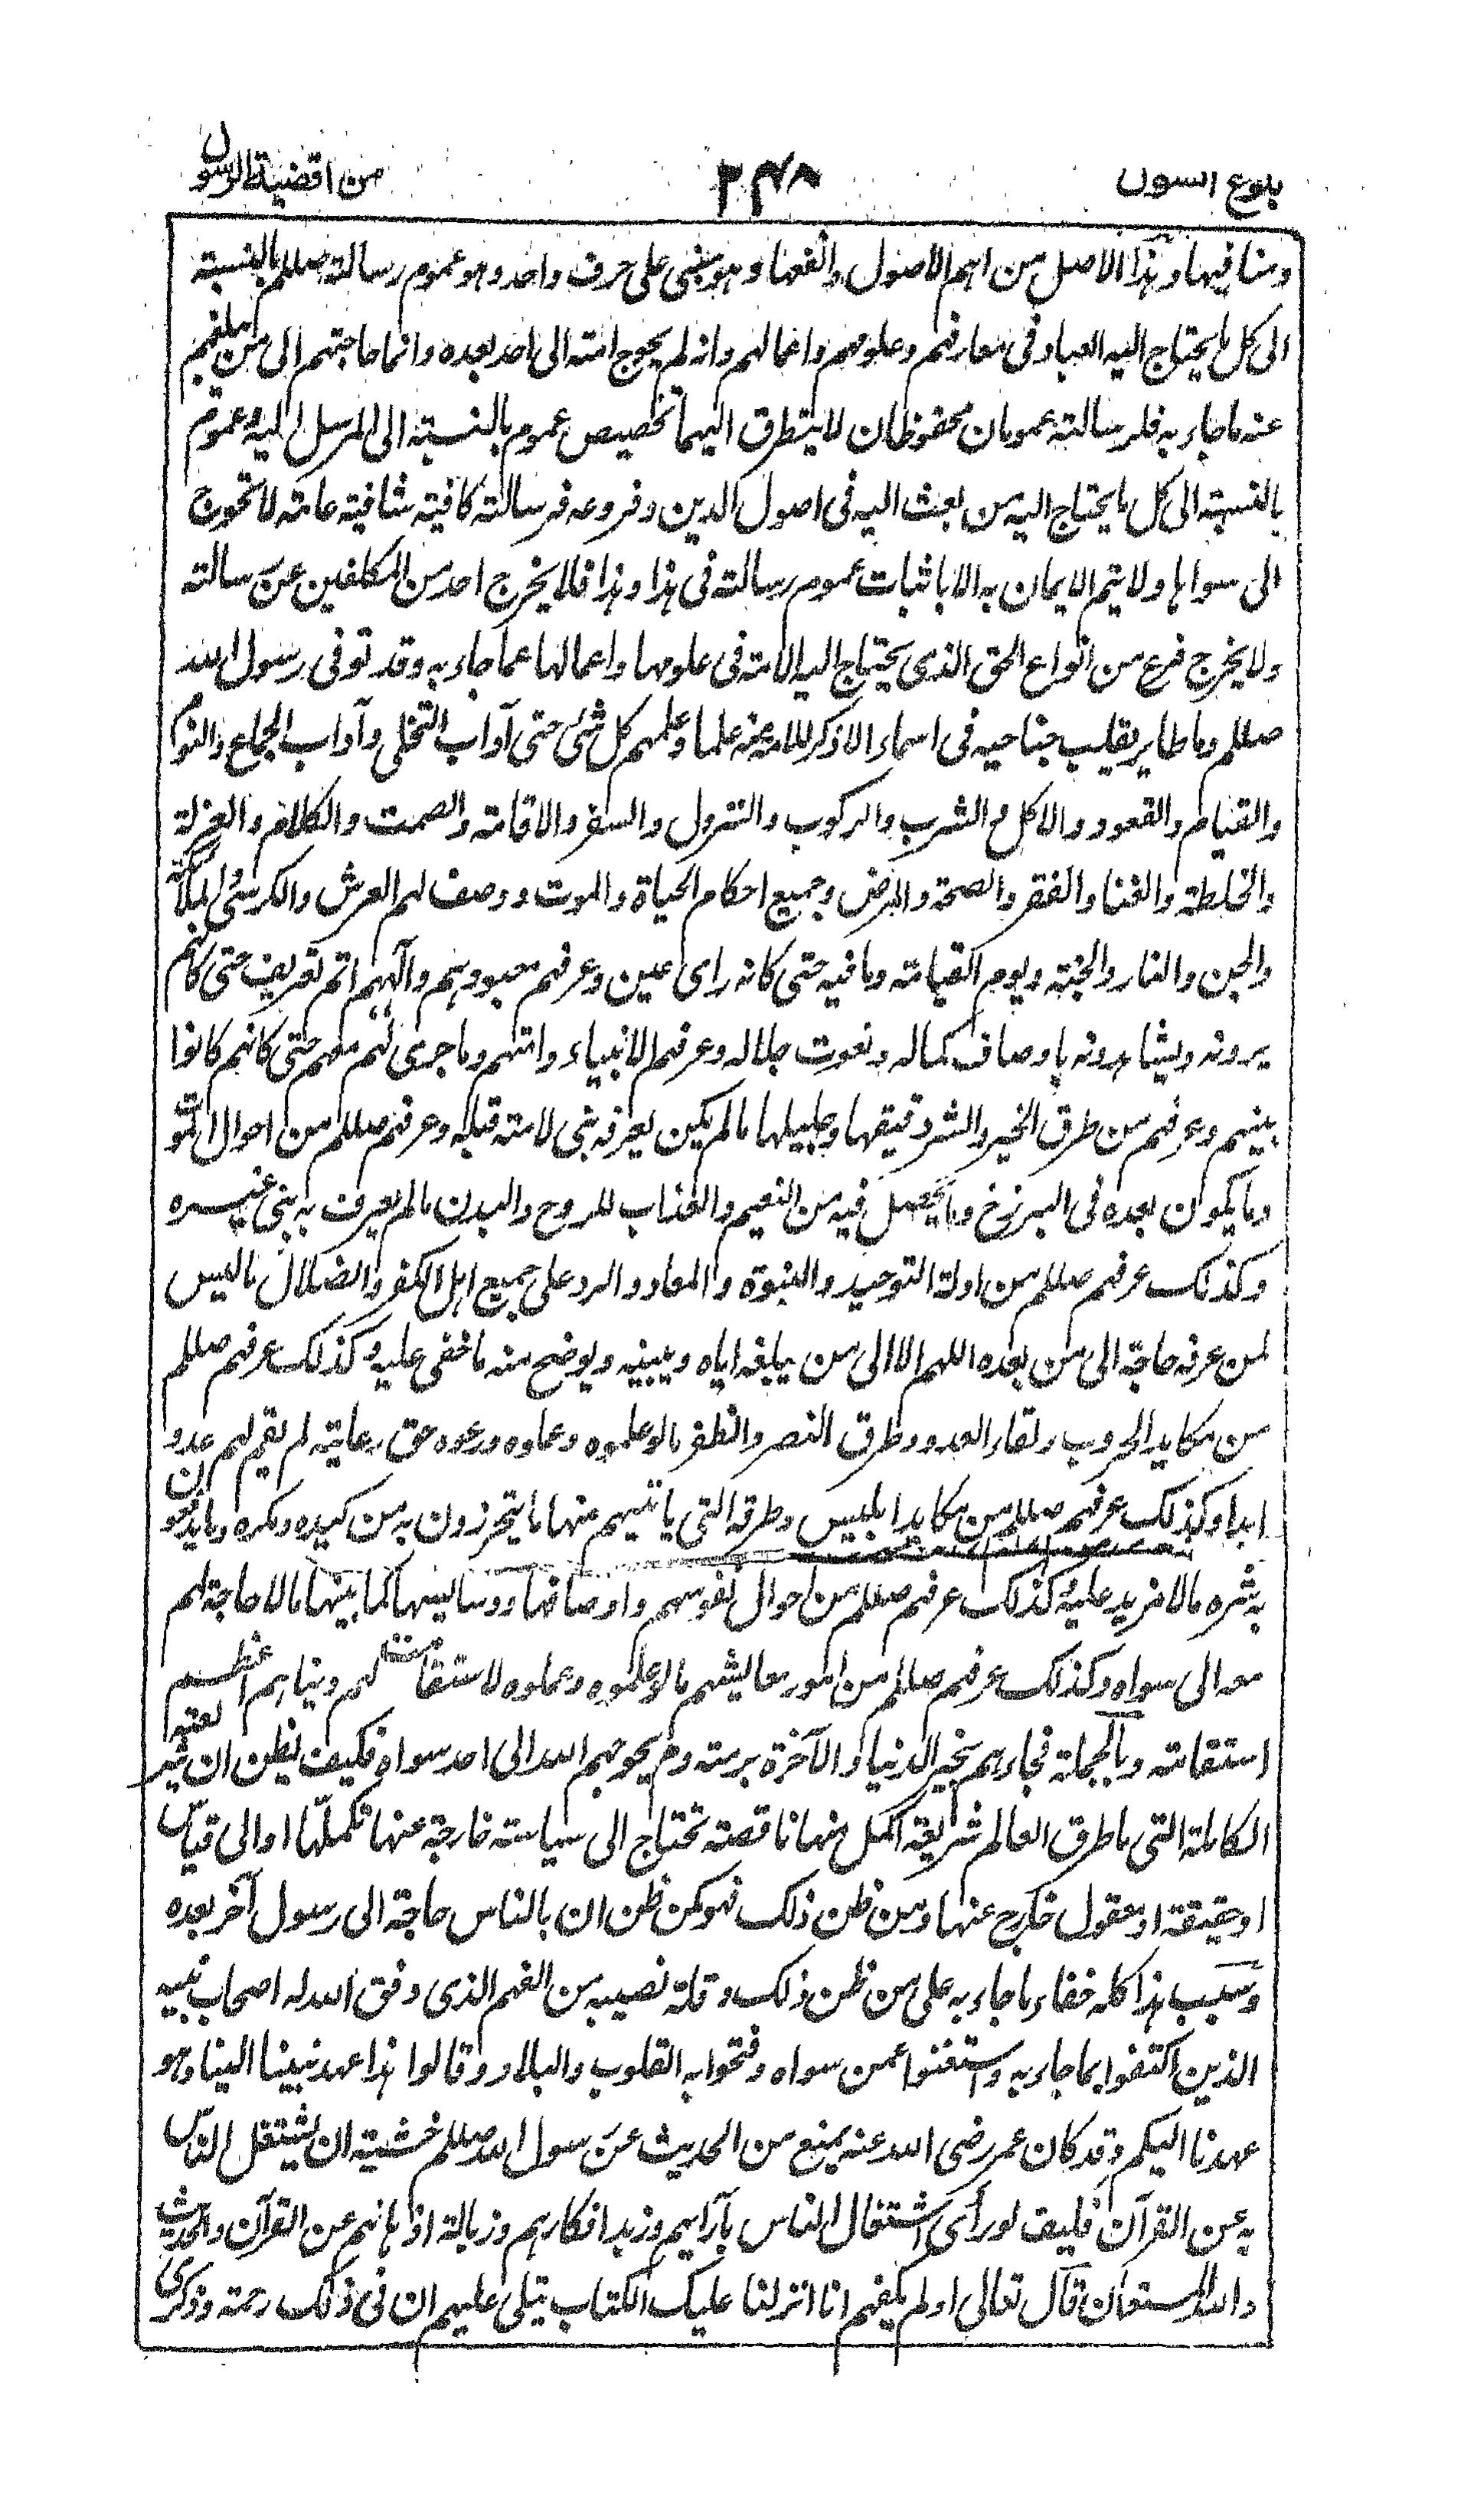 بلوغ السول ٢٤٨ من اقضية الرسول
ومنافيها وهذا الاصل من اهم الاصول وانفعها وهو مبنى على حرف واحد وهو عموم رسالته صللم بالنسبة
الى كل ما يحتاج اليه العباد فى معارفهم وعلومهم واعمالهم وانه لم يحوج امته الى احد بعده وانما حاجتهم الى من يبلغهم
عنه ما جاء به فلرسالته عمومان محفوظان لا يتطرق اليهما تخصيص عموم بالنسبة الى المرسل اليه وعموم
بالنسبة الى كل ما يحتاج اليه من بعث اليه فى اصول الدين وفروعه فرسالته كافية شافية عامة لا تحوج
الى سواها ولا يتم الايمان به الا باثبات عموم رسالته فى هذا وهذا فلا يخرج احد من المكلفين عن رسالته
ولا يخرج فرع من انواع الحق الذى يحتاج اليه الامة فى علومها واعمالها عما جاء به وقد توفى رسول الله
صللم وما طاير يقلب جناحيه فى اسماء الا ذكر للامة عنه علما وعلمهم كل شئ حتى آداب التخلى وآداب الجماع والنوم
والقيام والقعود والاكل والشرب والركوب والنزول والسفر والاقامة والصمت والكلام والعزلة
والخلطة والغنا والفقر والصحة والمرض وجميع احكام الحياة والموت ووصف لهم العرش والكرسى والملائكة
والجن والنار والجنة ويوم القيامة وما فيه حتى كانه راى عين وعرفهم معبودهم وآلههم اتم تعريف حتى كانهم
يرونه ويشاهدونه باوصاف كماله ونعوت جلاله وعرفهم الانبياء وامتهم وما جرى لهم معهم حتى كانهم كانوا
بينهم وعرفهم من طرق الخير والشر دقيقها وجليلها ما لم يكن يعرفه نبى لامته قبله وعرفهم صللم من احوال الموت
وما يكون بعده فى البرزخ وما يحصل فيه من النعيم والعذاب للروح والبدن ما لم يعرف به نبى غيره
وكذلك عرفهم صللم من ادلة التوحيد والنبوة والمعاد والرد على جميع اهل الكفر والضلال ما ليس
لمن عرفه حاجة الى من بعده اللهم الا الى من يبلغه اياه ويبينه ويوضح منه ما خفى عليه وكذلك عرفهم صللم
من مكايد الحروب ولقاء العدو وطرق النصر والظفر ما لو علموه وعملوه ورعوه حق رعايته لم يقم لهم عدو
ابدا وكذلك عرفهم صللم من مكايد ابليس وطرقه التى ياتيهم منها ما يتحرزون به من كيده ومكره وما يدفعون
به شره ما لا مزيد عليه كذلك عرفهم صللم من احوال نفوسهم واوصافها ودسايسها كما بينها ما لا حاجة لهم
معه الى سواه وكذلك عرفهم صللم من امور معاليشهم ما لو علموه وعملوه لاستقامت لهم دنياهم اعظم
استقامته وبالجملة فجاءهم بخير الدنيا والآخرة برمته ولم يحوجهم الله الى احد سواه فكيف يظن ان شريعته
الكاملة التى ما طرق العالم شريعة اكمل منها ناقصة تحتاج الى سياسة خارجة عنها تكملها او الى قياس
او حقيقة او معقول خارج عنها ومن ظن ذلك فهو كمن ظن ان بالناس حاجة الى رسول آخر بعده
وسبب هذا كله خفاء ما جاء به على من ظن ذلك وقلة نصيبه من الفهم الذى وفق الله له اصحاب نبيه
الذين اكتفوا بما جاء به واستغنوا عمن سواه وفتحوا به القلوب والبلاد وقالوا هذا عهد نبينا الينا وهو
عهدنا اليكم وقد كان عمر رضى الله عنه يمنع من الحديث عن رسول الله صللم خشية ان يشتغل الناس
به عن القرآن فكيف لو رأى اشتغال الناس بآرائهم وزبد افكارهم وزبالة اذهانهم عن القرآن والحديث
والله المستعان قال تعالى او لم يكفهم انا انزلنا عليك الكتاب يتلى عليهم ان فى ذلك رحمة وذكرى